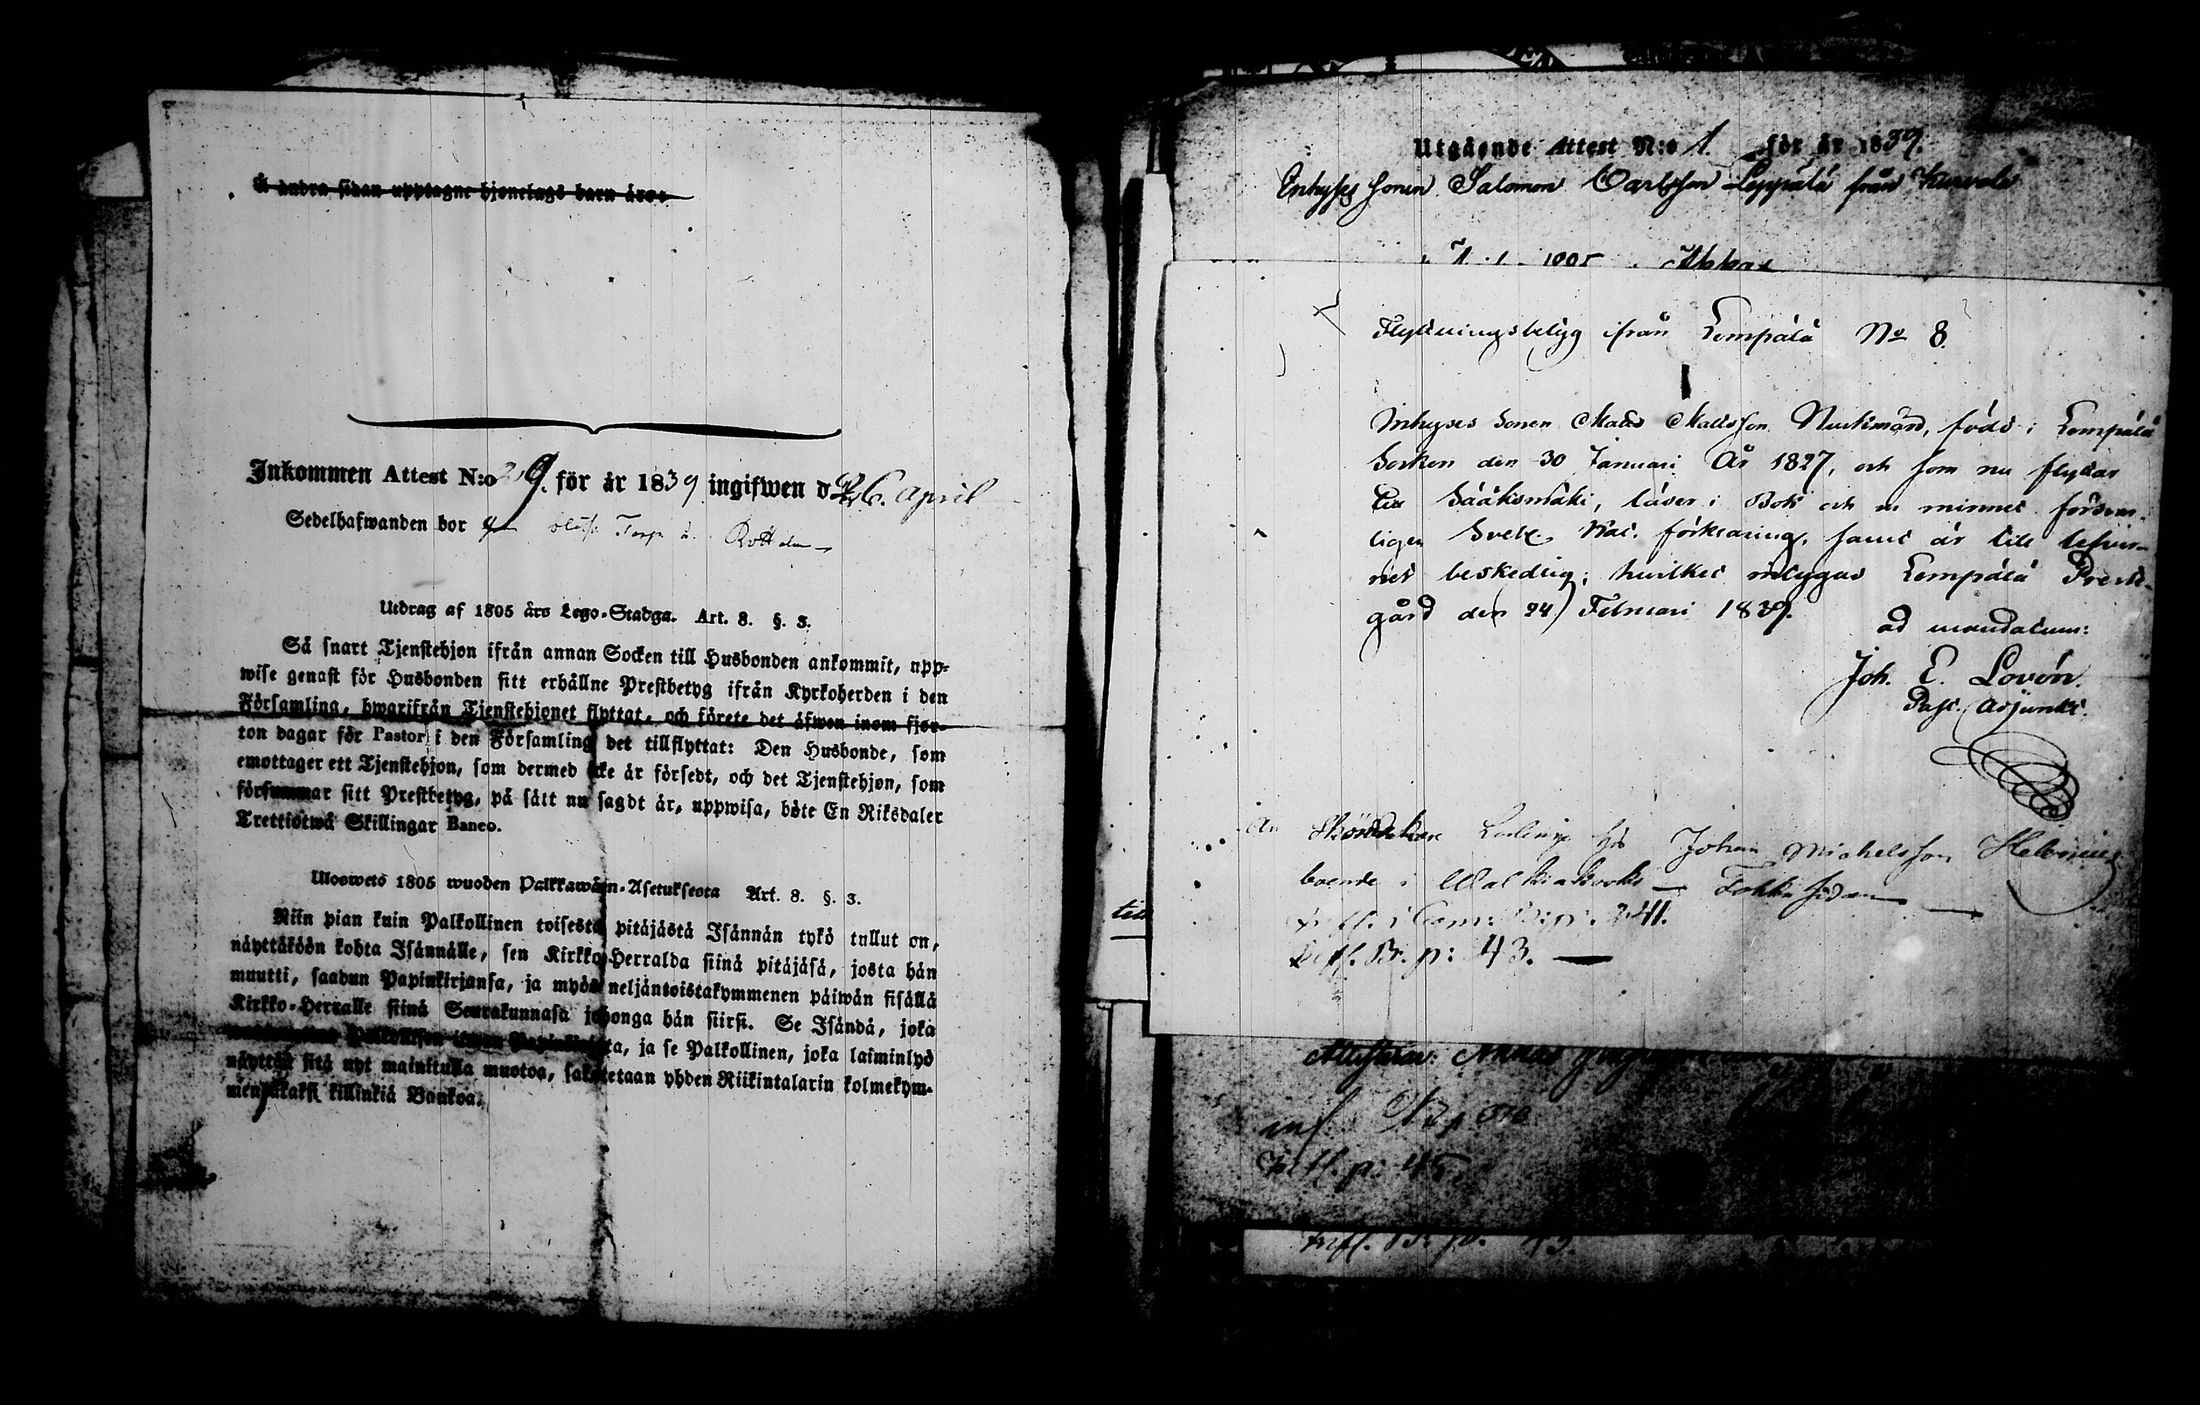 Å andra sidan upptagne hjonelags barn äro:
Inkommen Attest N:o 29. för år 1839 ingifwen d. 26. April
Sedelhafwanden bor på Torp å
Utdrag af 1805 års Lego-Stadga. Art. 8. §. 3.
Så snart Tjenstehjon ifrån annan Socken till Husbonden ankommit, upp-
wise genast för Husbonden sitt erhållne Prestbetyg ifrån Kyrkoherden i den
Församling, hwarifrån Tjenstehjonet flyttat, och förete det äfwen inom fjor-
ton dagar för Pastor i den Församling det tillflyttat: Den Husbonde, som
emottager ett Tjenstehjon, som dermed icke är försedt, och det Tjenstehjon, som
försummar sitt Prestbetyg, på sätt nu sagdt är, uppwisa, böte En Riksdaler
Trettiotwå Skillingar Banco.
Uloswets 1805 wuoden Palkkawäen-Asetuksesta Art. 8. §. 3.
Niin pian kuin Palkollinen toisesta pitäjästä Isännän tykö tullut on,
näyttäköön kohta Isännälle, sen Kirkko-Herralda siinä pitäjäsä, josta hän
muutti, saadun Papinkirjansa, ja myös neljäntoistakymmenen päiwän sisällä
Kirkko-Herralle siinä Seurakunnasa johonga hän siirsi. Se Isändä, joka
Palkollisen ilman Papinkirjata, ja se Palkollinen, joka laiminlyö
näyttää sitä nyt mainitulla muotoa, sakotetaan yhden Riikintalarin kolmekym-
mentäkaksi killinkiä Bankoa.
Utgående Attest N:o 1. för år 1839.
Inhyses sonen Salomon Carlsson Leppälä från Kurvola
Flyttningsbetyg ifrån Lempälä No 8.
Inhyses Sonen Matts Mattsson Nurkmärd, född i Lempälä
Socken den 30 Januari År 1827, och som nu flyttar
till Sääksmäki, läser i Bok och ur minnet försvar-
ligen Sveb. Kat. förklaring, samt är till lefver-
net beskedlig; hvilket intygas Lempälä Prest-
gård den 24 Februari 1839.
ad mandatum:
Joh. E. Lovén.
Past. Adjunkt.
hos Johan Michelsson Helenius
boende i Walkiakoski
Infl. i Com: B. p: 241.
Infl. B. p: 43.
Attesteras:
Infl. p: 45.
Infl. B. p. 43.